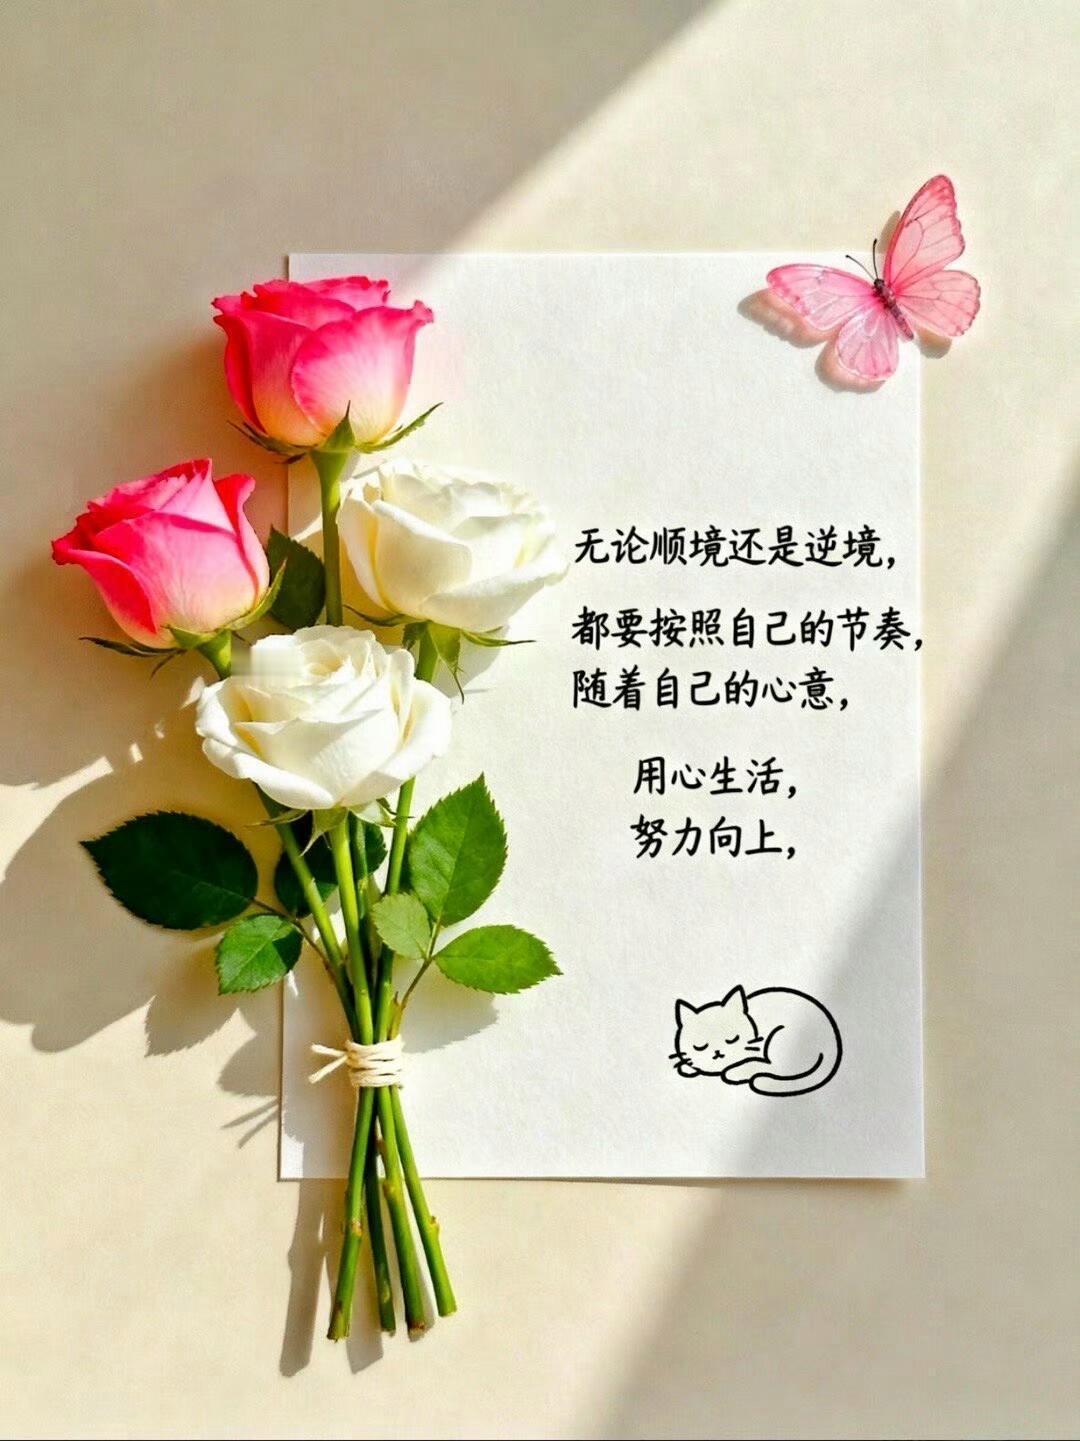 无论顺境还是逆境，
都要按照自己的节奏，
随着自己的心意，
用心生活，
努力向上，